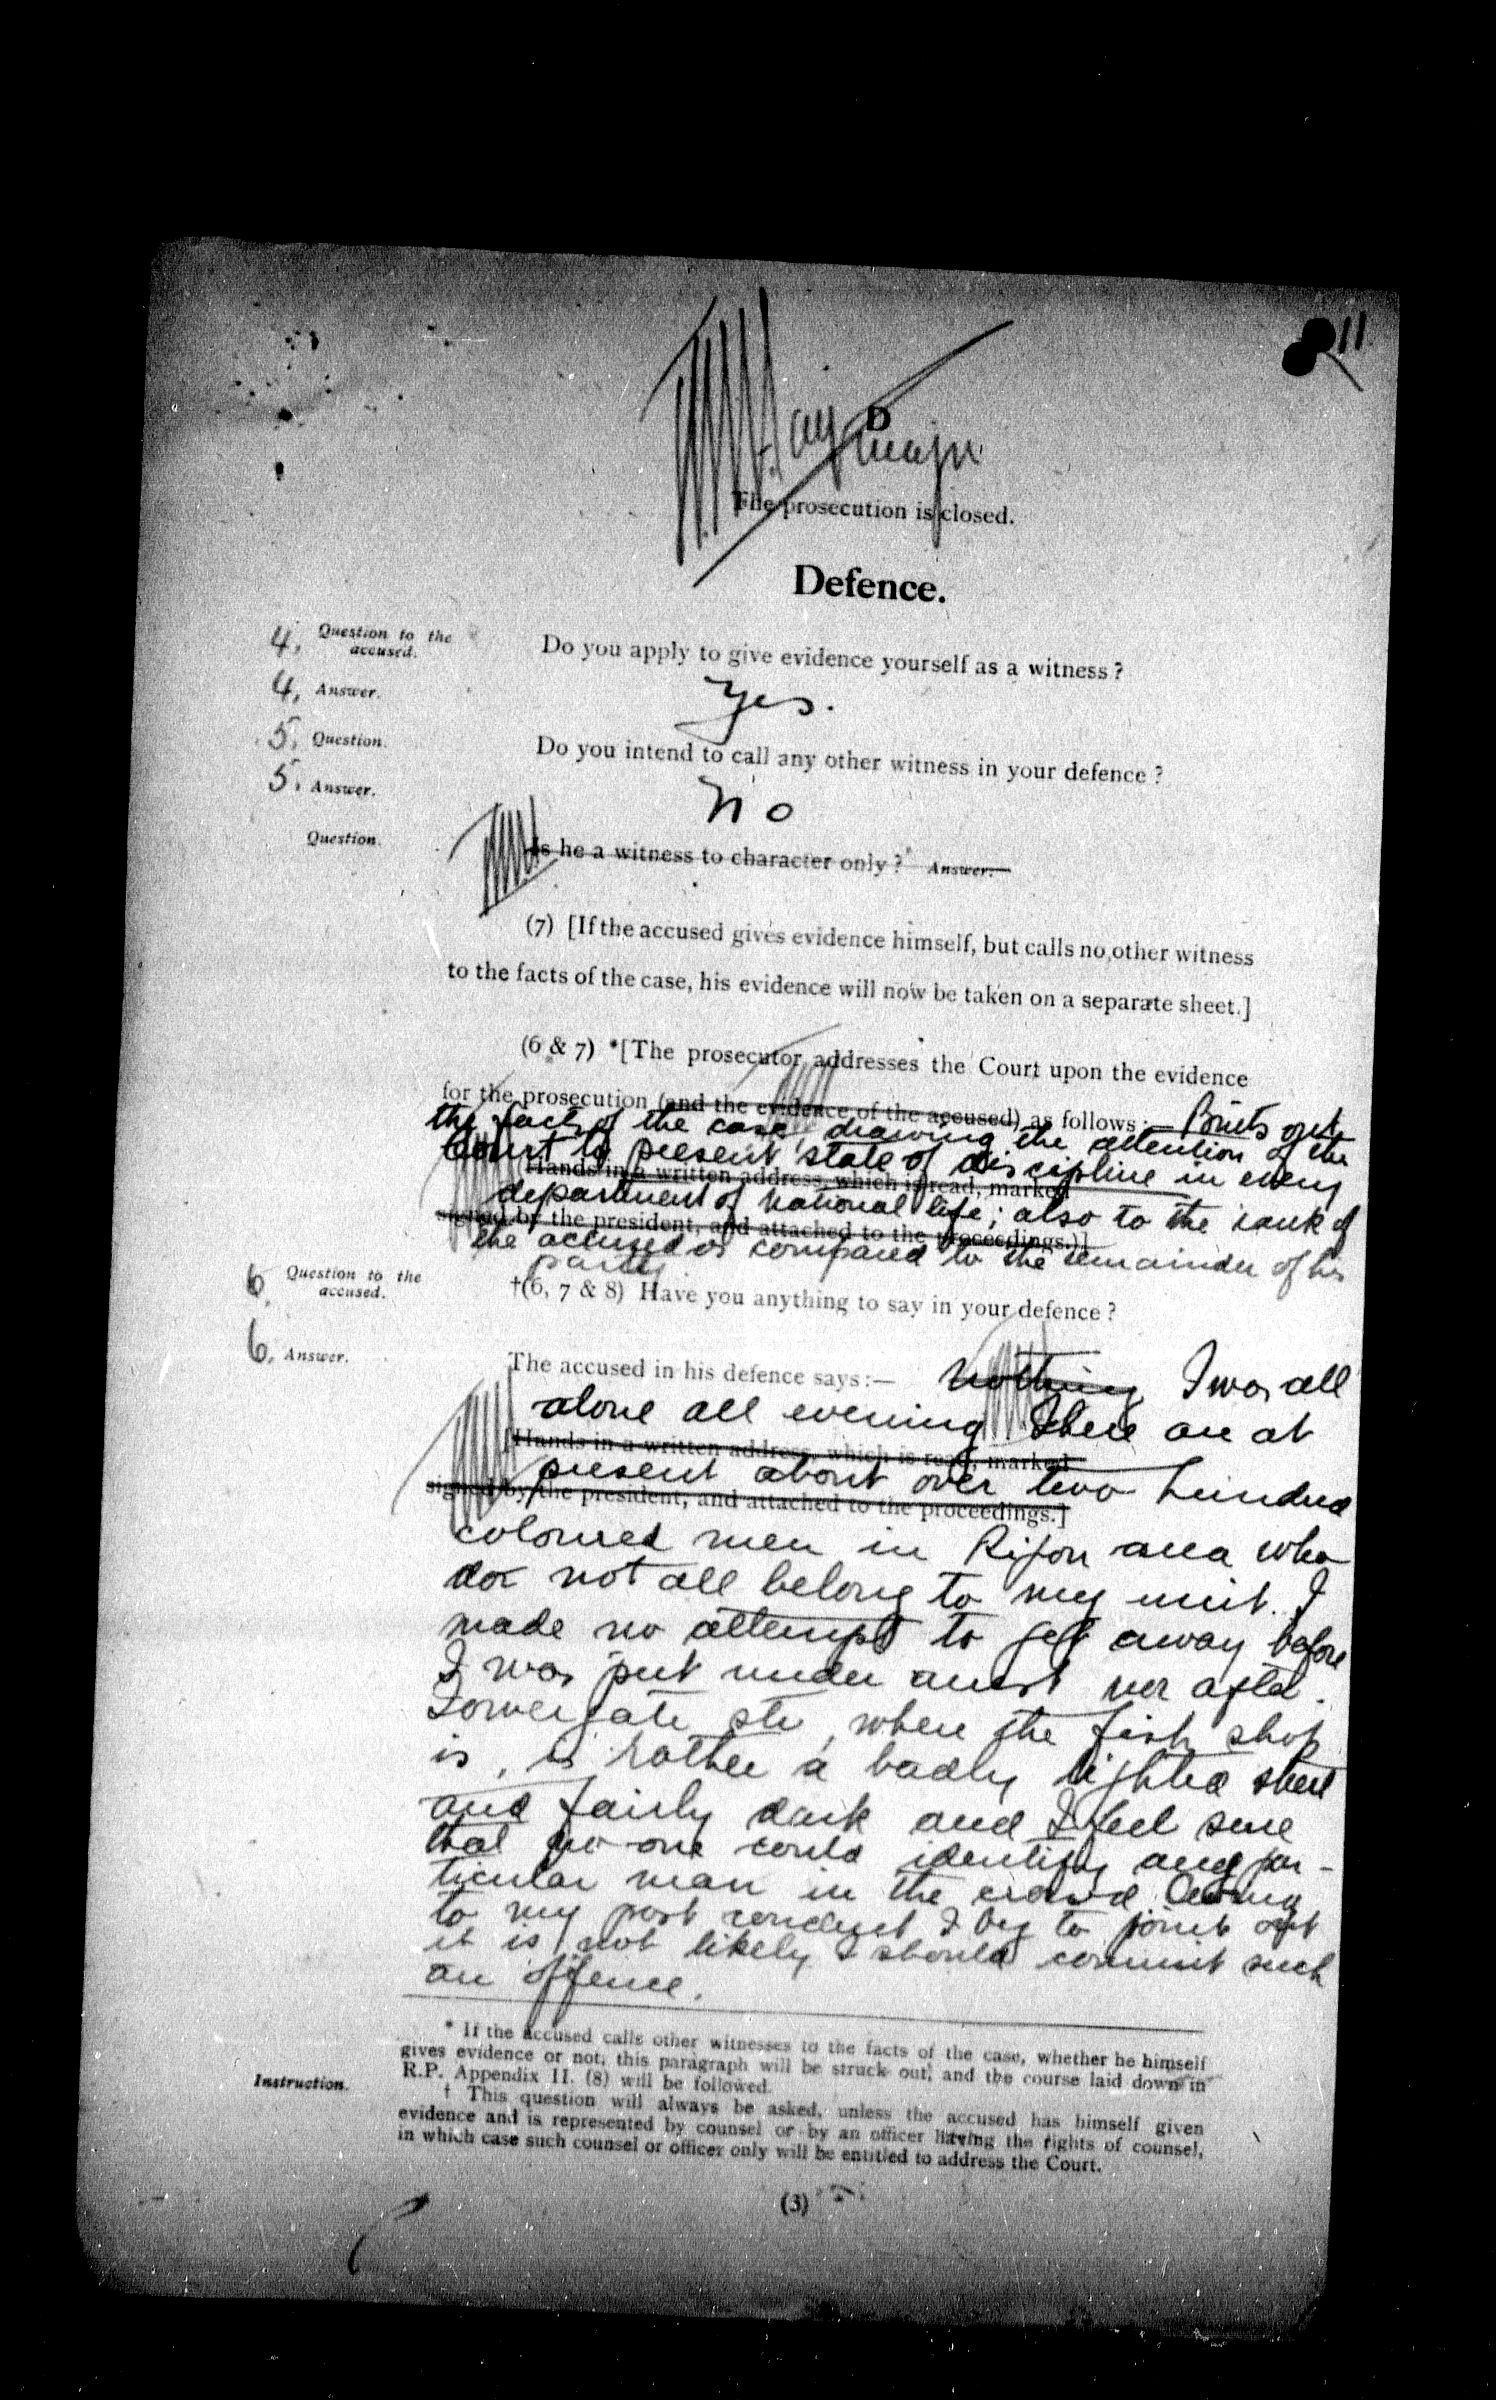 11
D
The prosecution is closed.
Defence.
4, Question to the accused. Do you apply to give evidence yourself as a witness?
4, Answer. Yes.
5, Question. Do you intend to call any other witness in your defence?
5, Answer. No
Question. Is he a witness to character only? Answer.
(7) [If the accused gives evidence himself, but calls no other witness
to the facts of the case, his evidence will now be taken on a separate sheet.]
(6 & 7) *[The prosecutor addresses the Court upon the evidence
for the prosecution (and the evidence of the accused) as follows:— Points out
the facts of the case drawing the attention of the
Court to present state of discipline in every
Hands in a written address, which is read, marked
department of national life; also to the rank of
signed by the president, and attached to the proceedings.)]
the accused as compared to the remainder of his
party.
6 Question to the accused. †(6, 7 & 8) Have you anything to say in your defence?
6, Answer. The accused in his defence says:— Nothing I was all
alone all evening There are at
Hands in a written address, which is read, marked
present about over two hundred
signed by the president, and attached to the proceedings.]
coloured men in Ripon area who
do not all belong to my unit. I
made no attempt to get away before
I was put under arrest nor after.
str, where the fish shop
is, is rather a badly lighted street
and fairly dark and I feel sure
that no one could identify any par-
ticular man in the crowd. Owing
to my past conduct I beg to point out
it is not likely I should commit such
an offence.
* If the accused calls other witnesses to the facts of the case, whether he himself
gives evidence or not, this paragraph will be struck out, and the course laid down in
R.P. Appendix II. (8) will be followed.
Instruction.
† This question will always be asked, unless the accused has himself given
evidence and is represented by counsel or by an officer having the rights of counsel,
in which case such counsel or officer only will be entitled to address the Court.
(3)